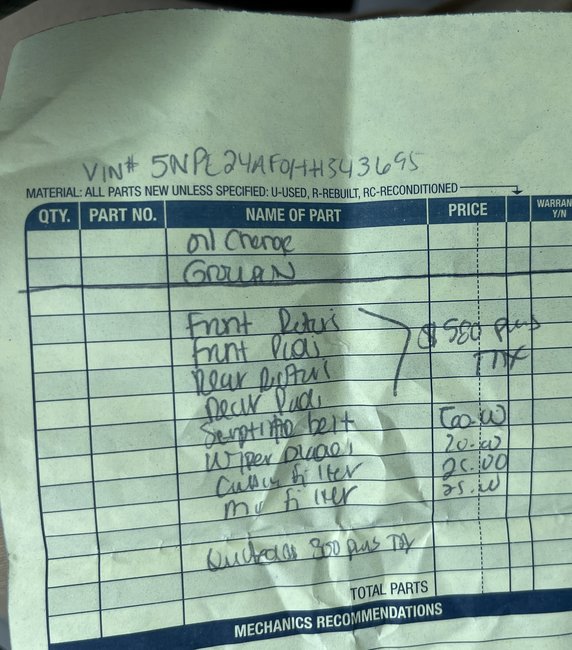 VIN# 5NPE24AF0HH343695
MATERIAL: ALL PARTS NEW UNLESS SPECIFIED: U-USED, R-REBUILT, RC-RECONDITIONED
QTY. PART NO. NAME OF PART PRICE WARRAN Y/N
Oil Change
Front Rotors
Front Pads $580 plus
Rear Rotors TAX
Rear Pads
belt
Wiper 20.00
Cabin filter 25.00
filter 25.00
plus TAX
TOTAL PARTS
MECHANICS RECOMMENDATIONS